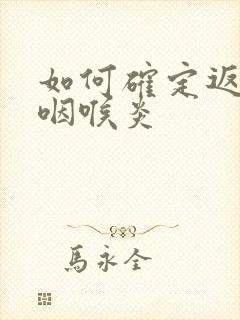 如何確定返
咽喉炎
馬永全